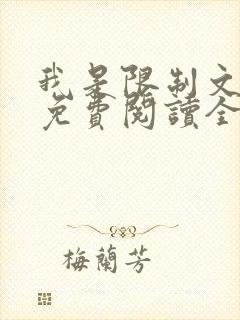 我是限制文
免費閱讀全
梅蘭芳